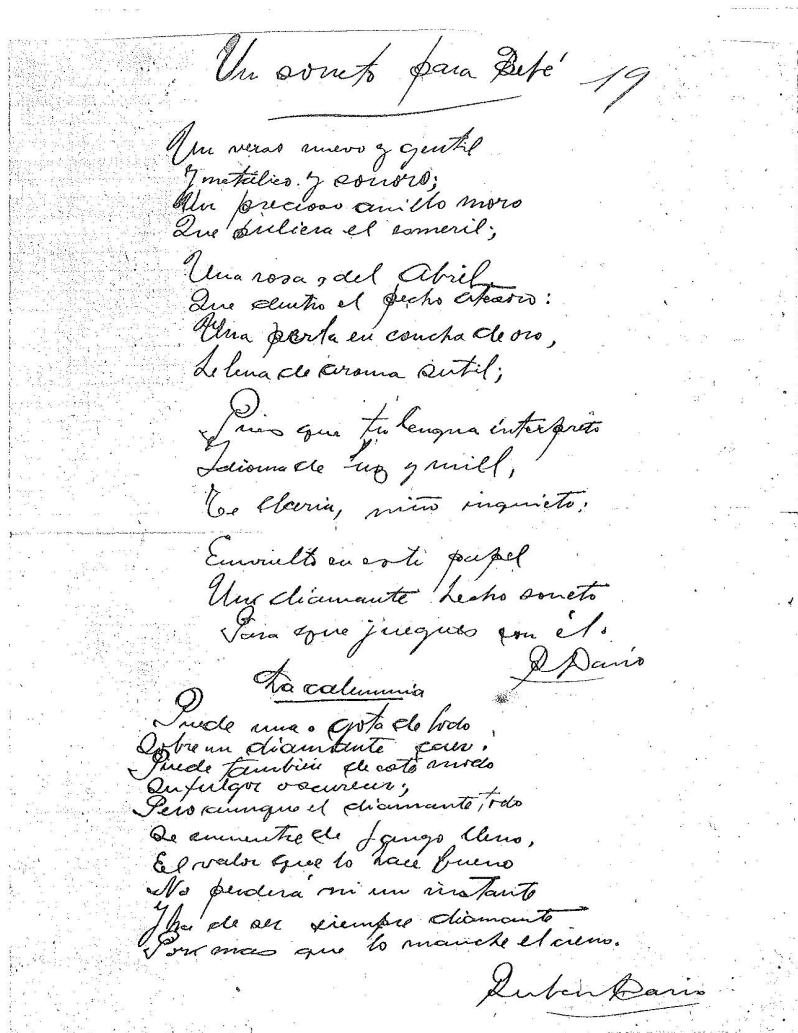 Un soneto para Bebé 19
Un verso nuevo y gentil
Y metálico y sonoro;
Un precioso anillo moro
Que puliera el esmeril;
Una rosa, del Abril
Que dentro el pecho atesoro:
Una perla en concha de oro,
Llena de aroma sutil;
Pues que tu lengua interpreto
Idioma de luz y miel,
Te daria, niño inquieto;
Envuelto en este papel
Un diamante hecho soneto
Para que juegues con él.
R Dario
La calumnia
Puede una gota de lodo
Sobre un diamante caer;
Puede también de este modo
Su fulgor oscurecer;
Pero aunque el diamante todo
Se encuentre de fango lleno,
El valor que lo hace bueno
No perderá ni un instante
Y ha de ser siempre diamante
Por mas que lo manche el cieno.
Ruben Dario